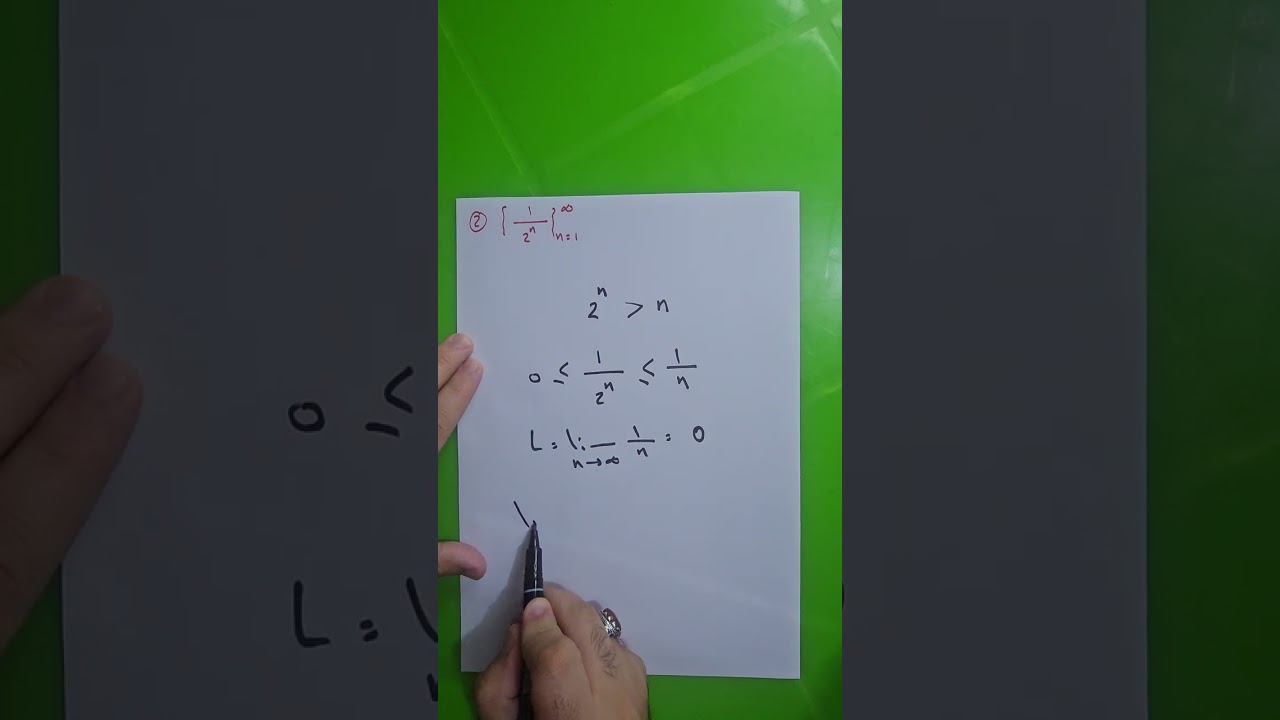 ② { 1/2^n }_{n=1}^∞
2^n > n
0 ≤ 1/2^n ≤ 1/n
L = lim_{n→∞} 1/n = 0